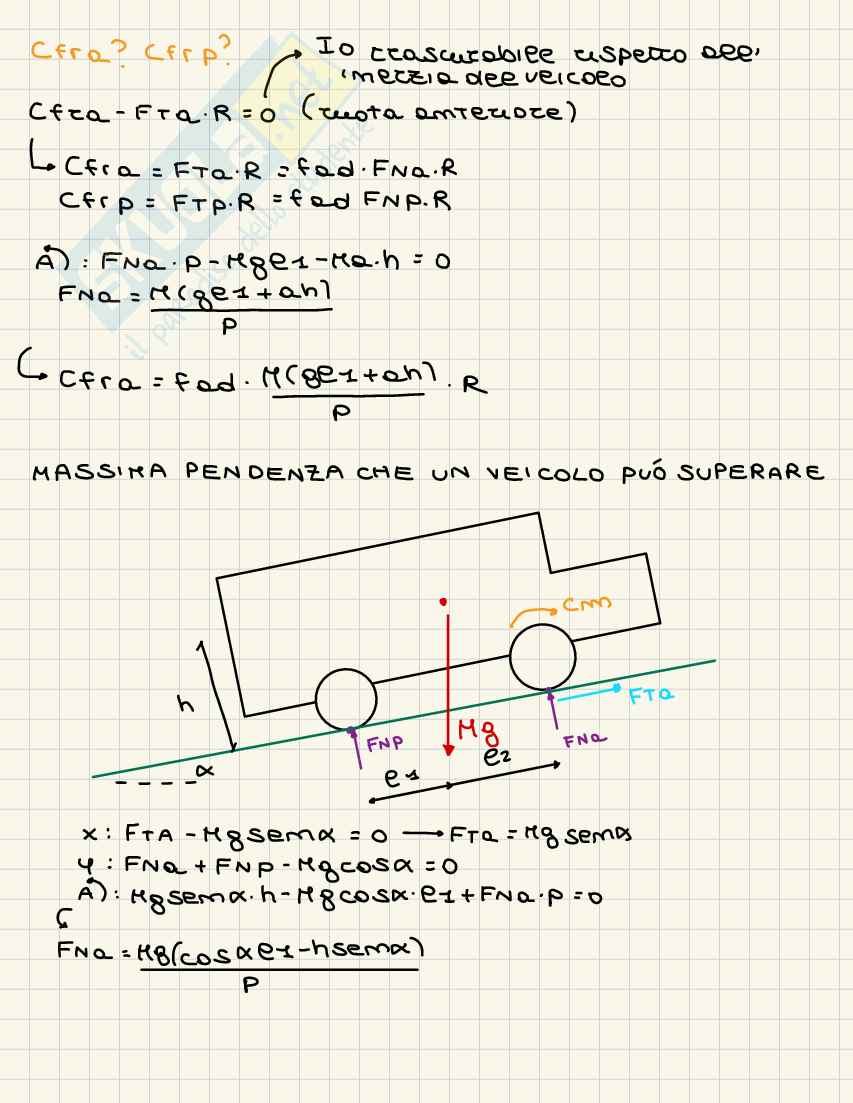 Cfra? Cfrp?
Io trascurabile rispetto all'
inerzia del veicolo
Cfra - FTa·R = 0 (ruota anteriore)
Cfra = FTa·R = fad·FNa·R
Cfrp = FTp·R = fad FNp·R
A): FNa·p - Mge1 - Ma·h = 0
FNa = M(ge1 + ah)
P
Cfra = fad · M(ge1 + ah) · R
P
MASSIMA PENDENZA CHE UN VEICOLO PUÓ SUPERARE
Cm
h
FTa
FNp
Mg
FNa
α
e1
e2
x: FTA - Mg senα = 0 → FTa = Mg senα
y: FNa + FNp - Mg cosα = 0
A): Mg senα·h - Mg cosα·e1 + FNa·p = 0
FNa = Mg(cosαe1 - hsenα)
P
SKUOLA.net